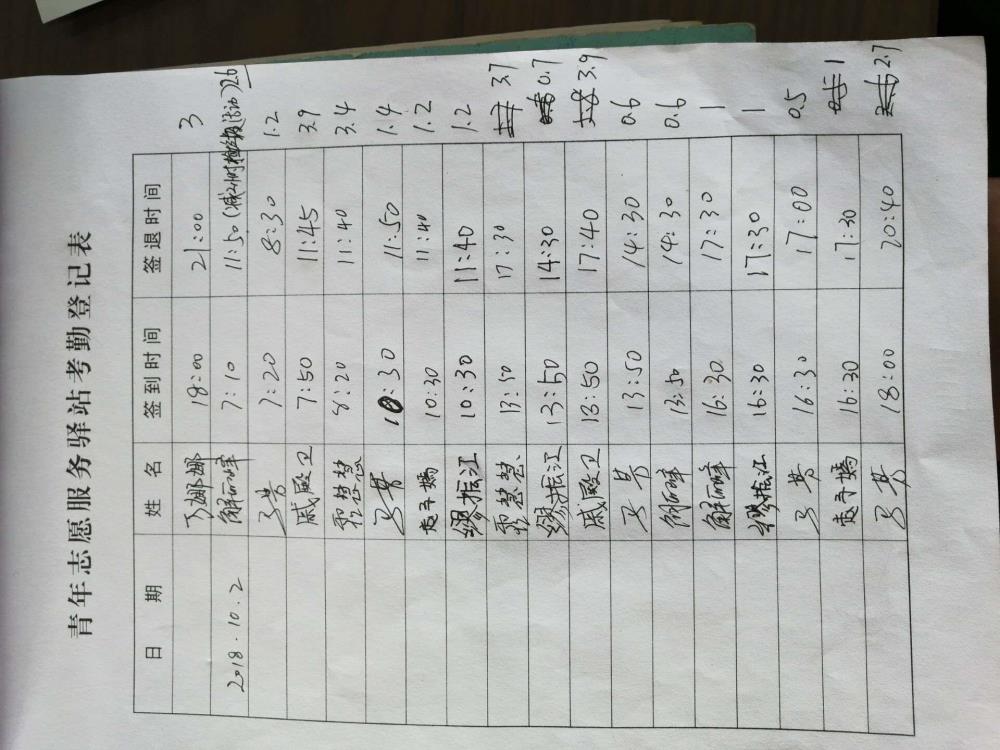 青年志愿服务驿站考勤登记表
日 期 姓 名 签到时间 签退时间
娜娜 18:00 21:00 3
2018.10.2 解丽峰 7:10 11:50 (减2小时 活动) 2.6
马英 7:20 8:30 1.2
戚殿卫 7:50 11:45 3.9
慧慧 8:20 11:40 3.4
马英 10:30 11:50 1.4
10:30 11:40 1.2
缪振江 10:30 11:40 1.2
慧慧 13:50 17:30 3.7
缪振江 13:50 14:30 0.7
戚殿卫 13:50 17:40 3.9
马英 13:50 14:30 0.6
解丽峰 13:50 14:30 0.6
解丽峰 16:30 17:30 1
缪振江 16:30 17:30 1
马英 16:30 17:00 0.5
16:30 17:30 1
马英 18:00 20:40 2.7